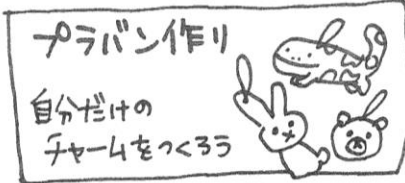 プラバン作り
自分だけの
チャームをつくろう